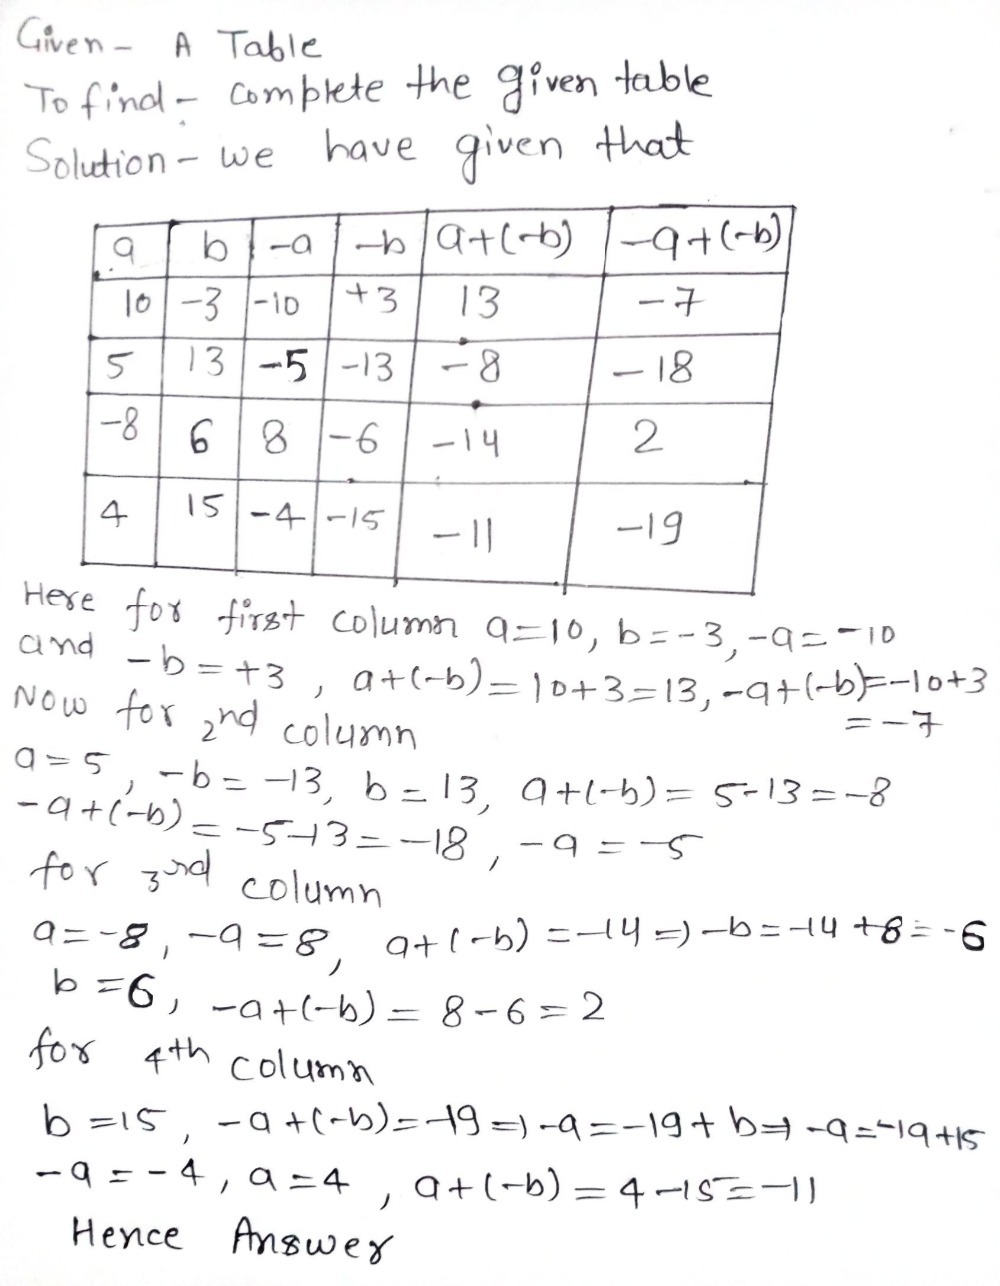 Given - A Table
To find - complete the given table
Solution - we have given that
a b -a -b a+(-b) -a+(-b)
10 -3 -10 +3 13 -7
5 13 -5 -13 -8 -18
-8 6 8 -6 -14 2
4 15 -4 -15 -11 -19
Here for first column a=10, b=-3, -a=-10
and -b=+3, a+(-b)=10+3=13, -a+(-b)=-10+3
=-7
Now for 2nd column
a=5, -b=-13, b=13, a+(-b)=5-13=-8
-a+(-b)=-5-13=-18, -a=-5
for 3rd column
a=-8, -a=8, a+(-b)=-14=) -b=-14+8=-6
b=6, -a+(-b)=8-6=2
for 4th column
b=15, -a+(-b)=-19=) -a=-19+b=) -a=-19+15
-a=-4, a=4, a+(-b)=4-15=-11
Hence Answer